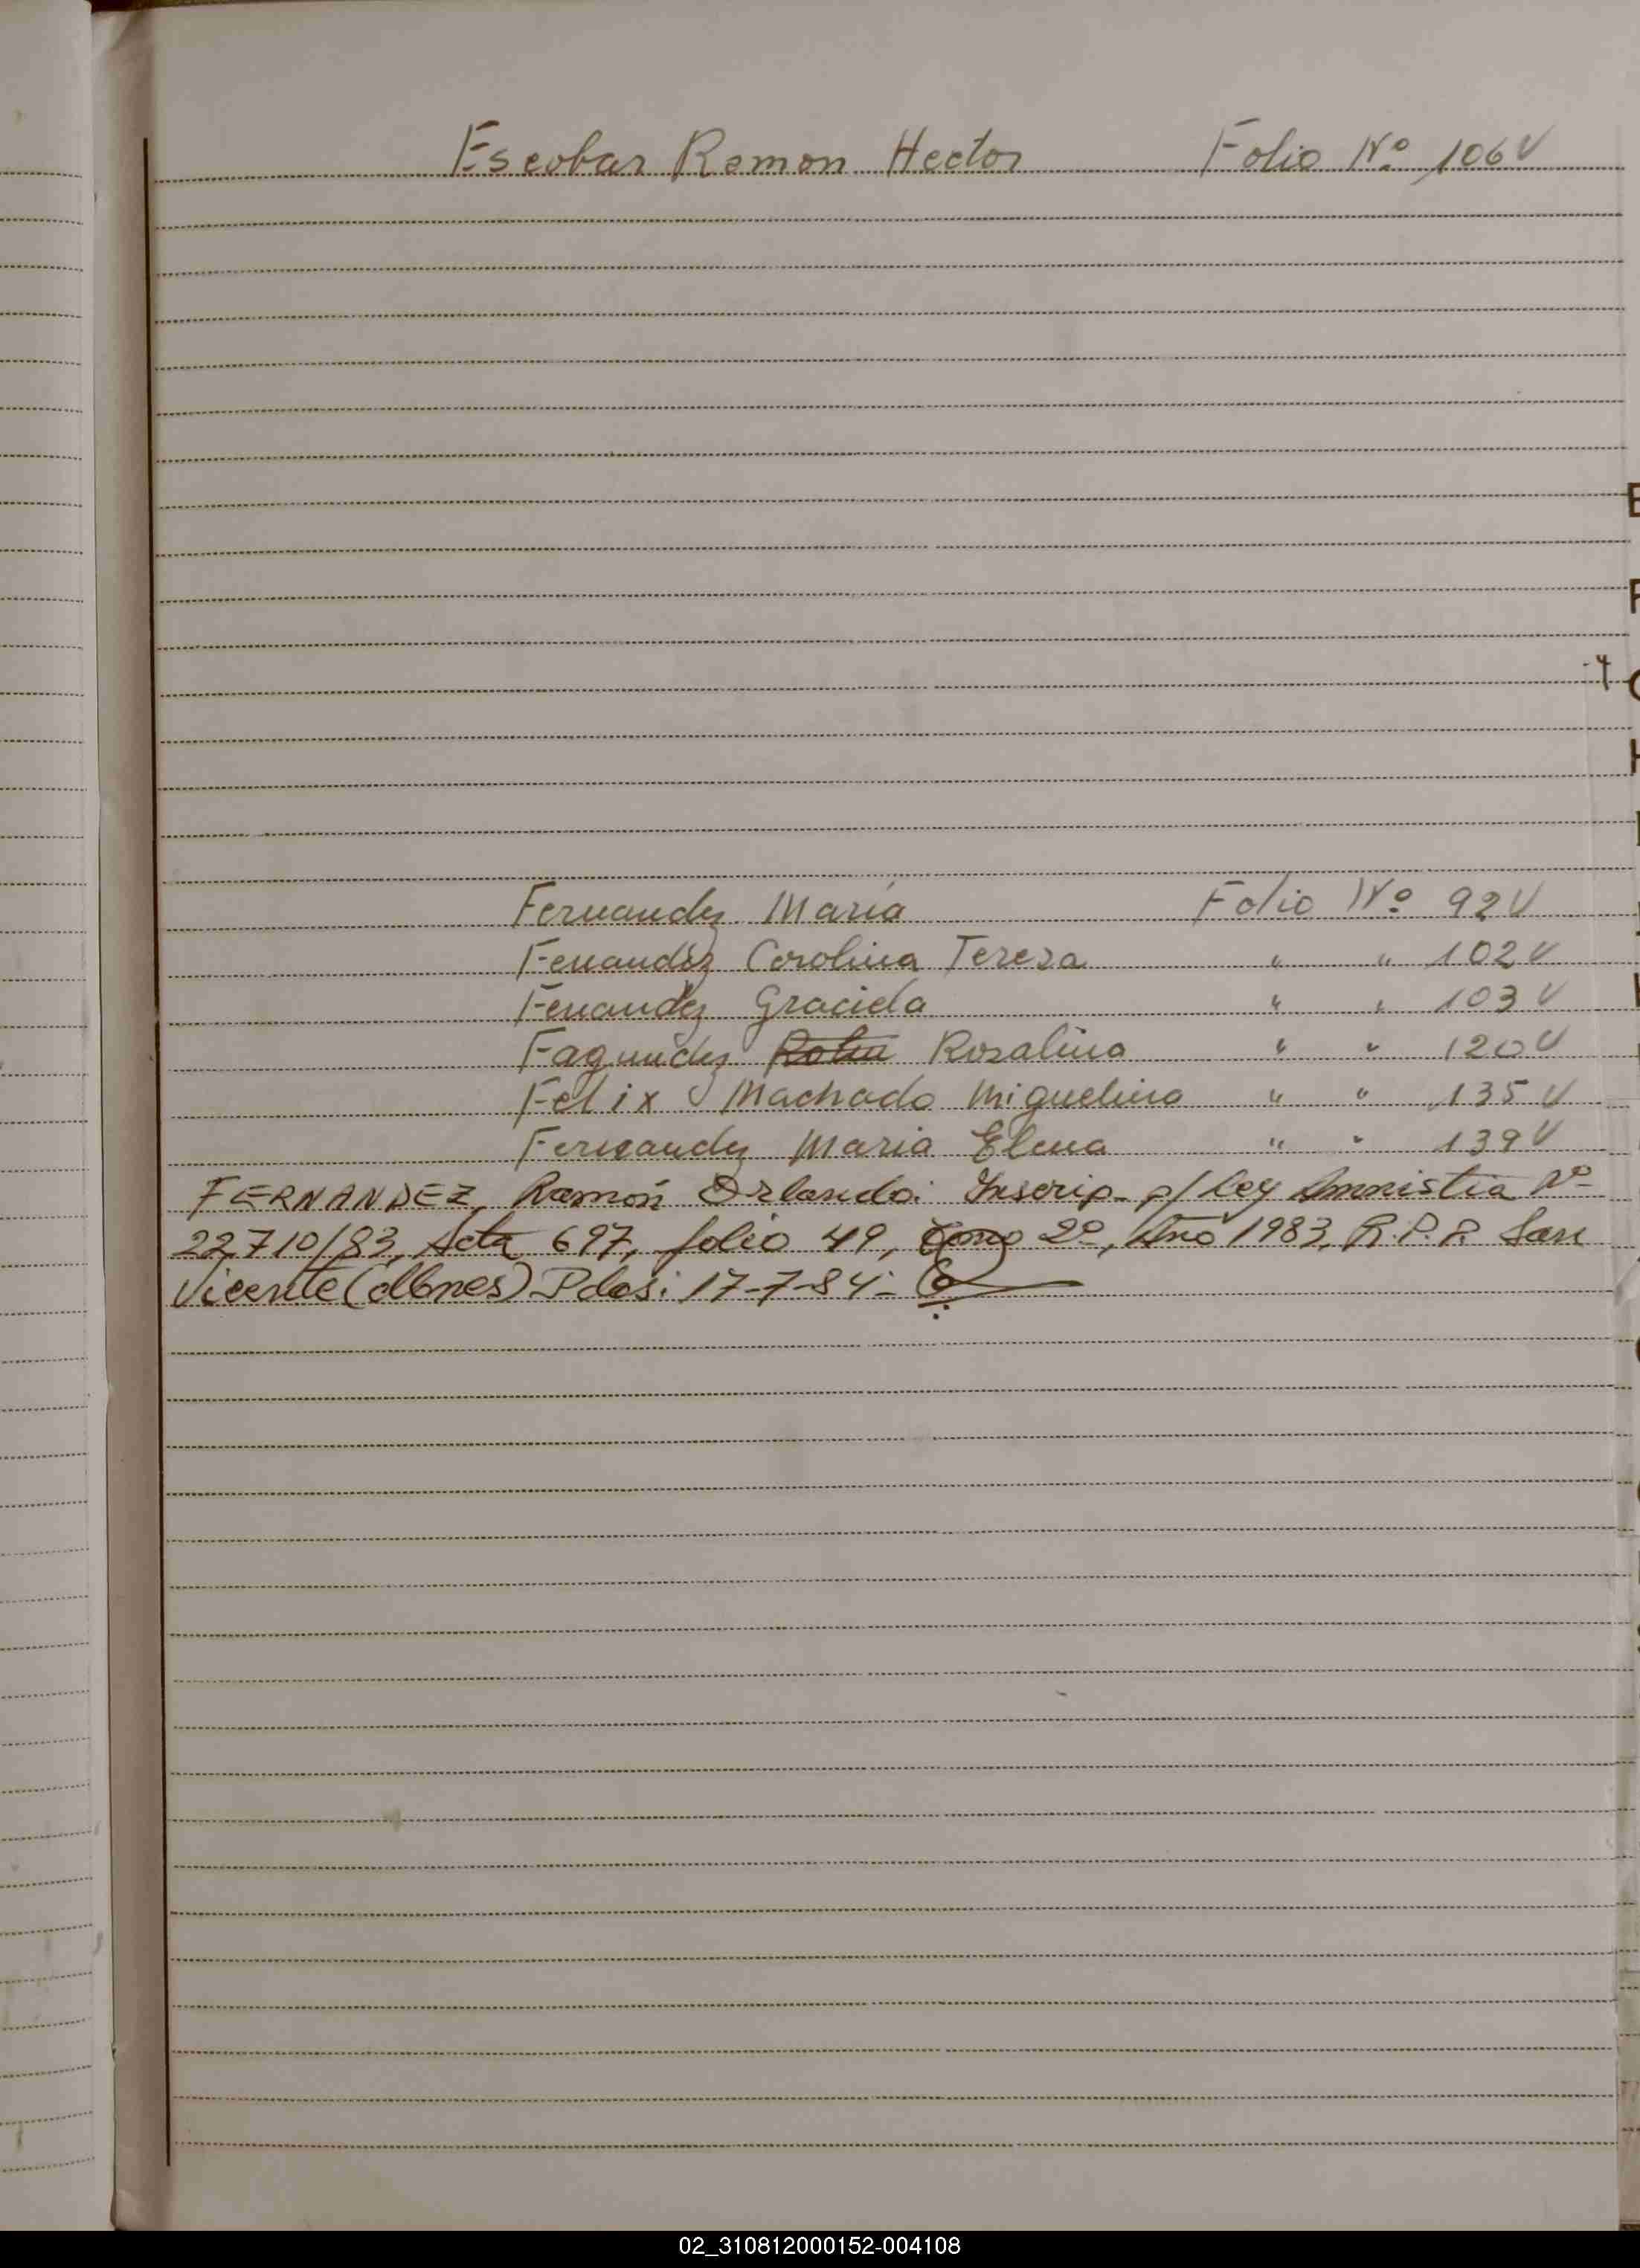 Escobar Ramon Hector Folio Nº 106 V
Fernandez Maria Folio Nº 92 V
Fenandez Carolina Tereza " " 102 V
Fenandez Graciela " " 103 V
Fagundez Rosalina " " 120 V
Felix Machado Miguelina " " 135 V
Fernandez Maria Elena " " 139 V
FERNANDEZ, Ramón Orlando: Inscrip. p/ Ley Amnistia Nº
22.710/83, Acta 697, folio 49, Tomo 2º, Año 1983, R.P.P. San
Vicente (Mnes) Pdas: 17-7-84-
E
F
H
02_310812000152-004108